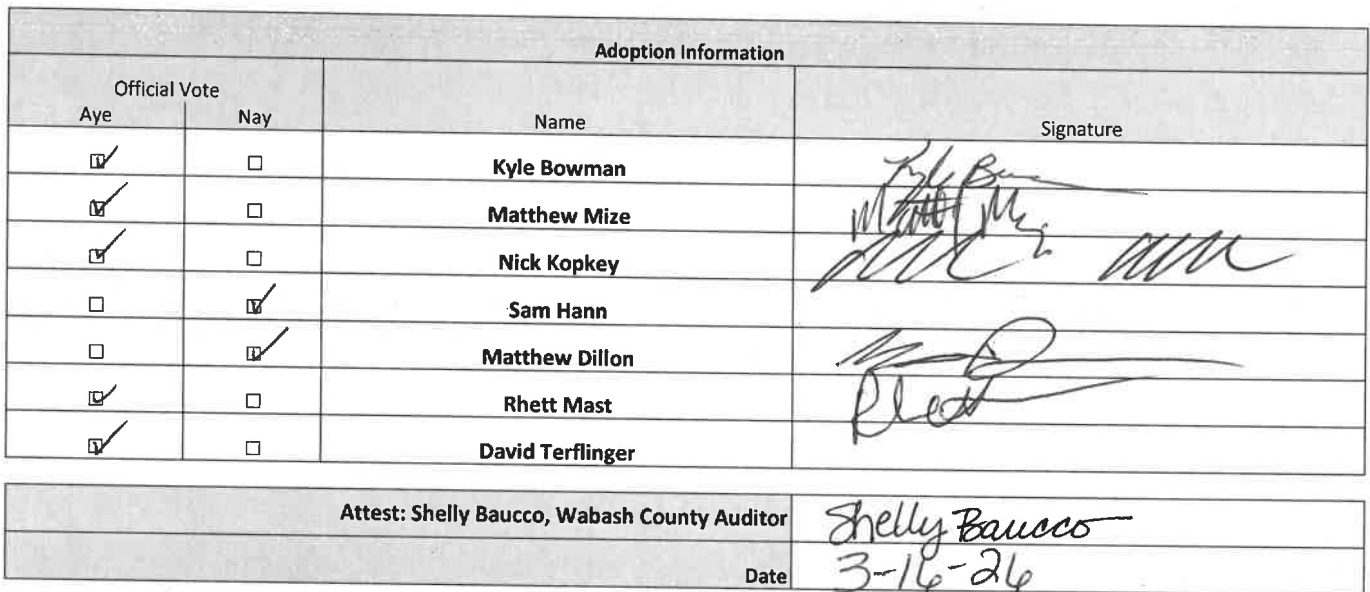 Adoption Information
Official Vote
Aye Nay Name Signature
Kyle Bowman Kyle
Matthew Mize Matt
Nick Kopkey
Sam Hann
Matthew Dillon
Rhett Mast Rhett
David Terflinger
Attest: Shelly Baucco, Wabash County Auditor Shelly Baucco
Date 3-16-26